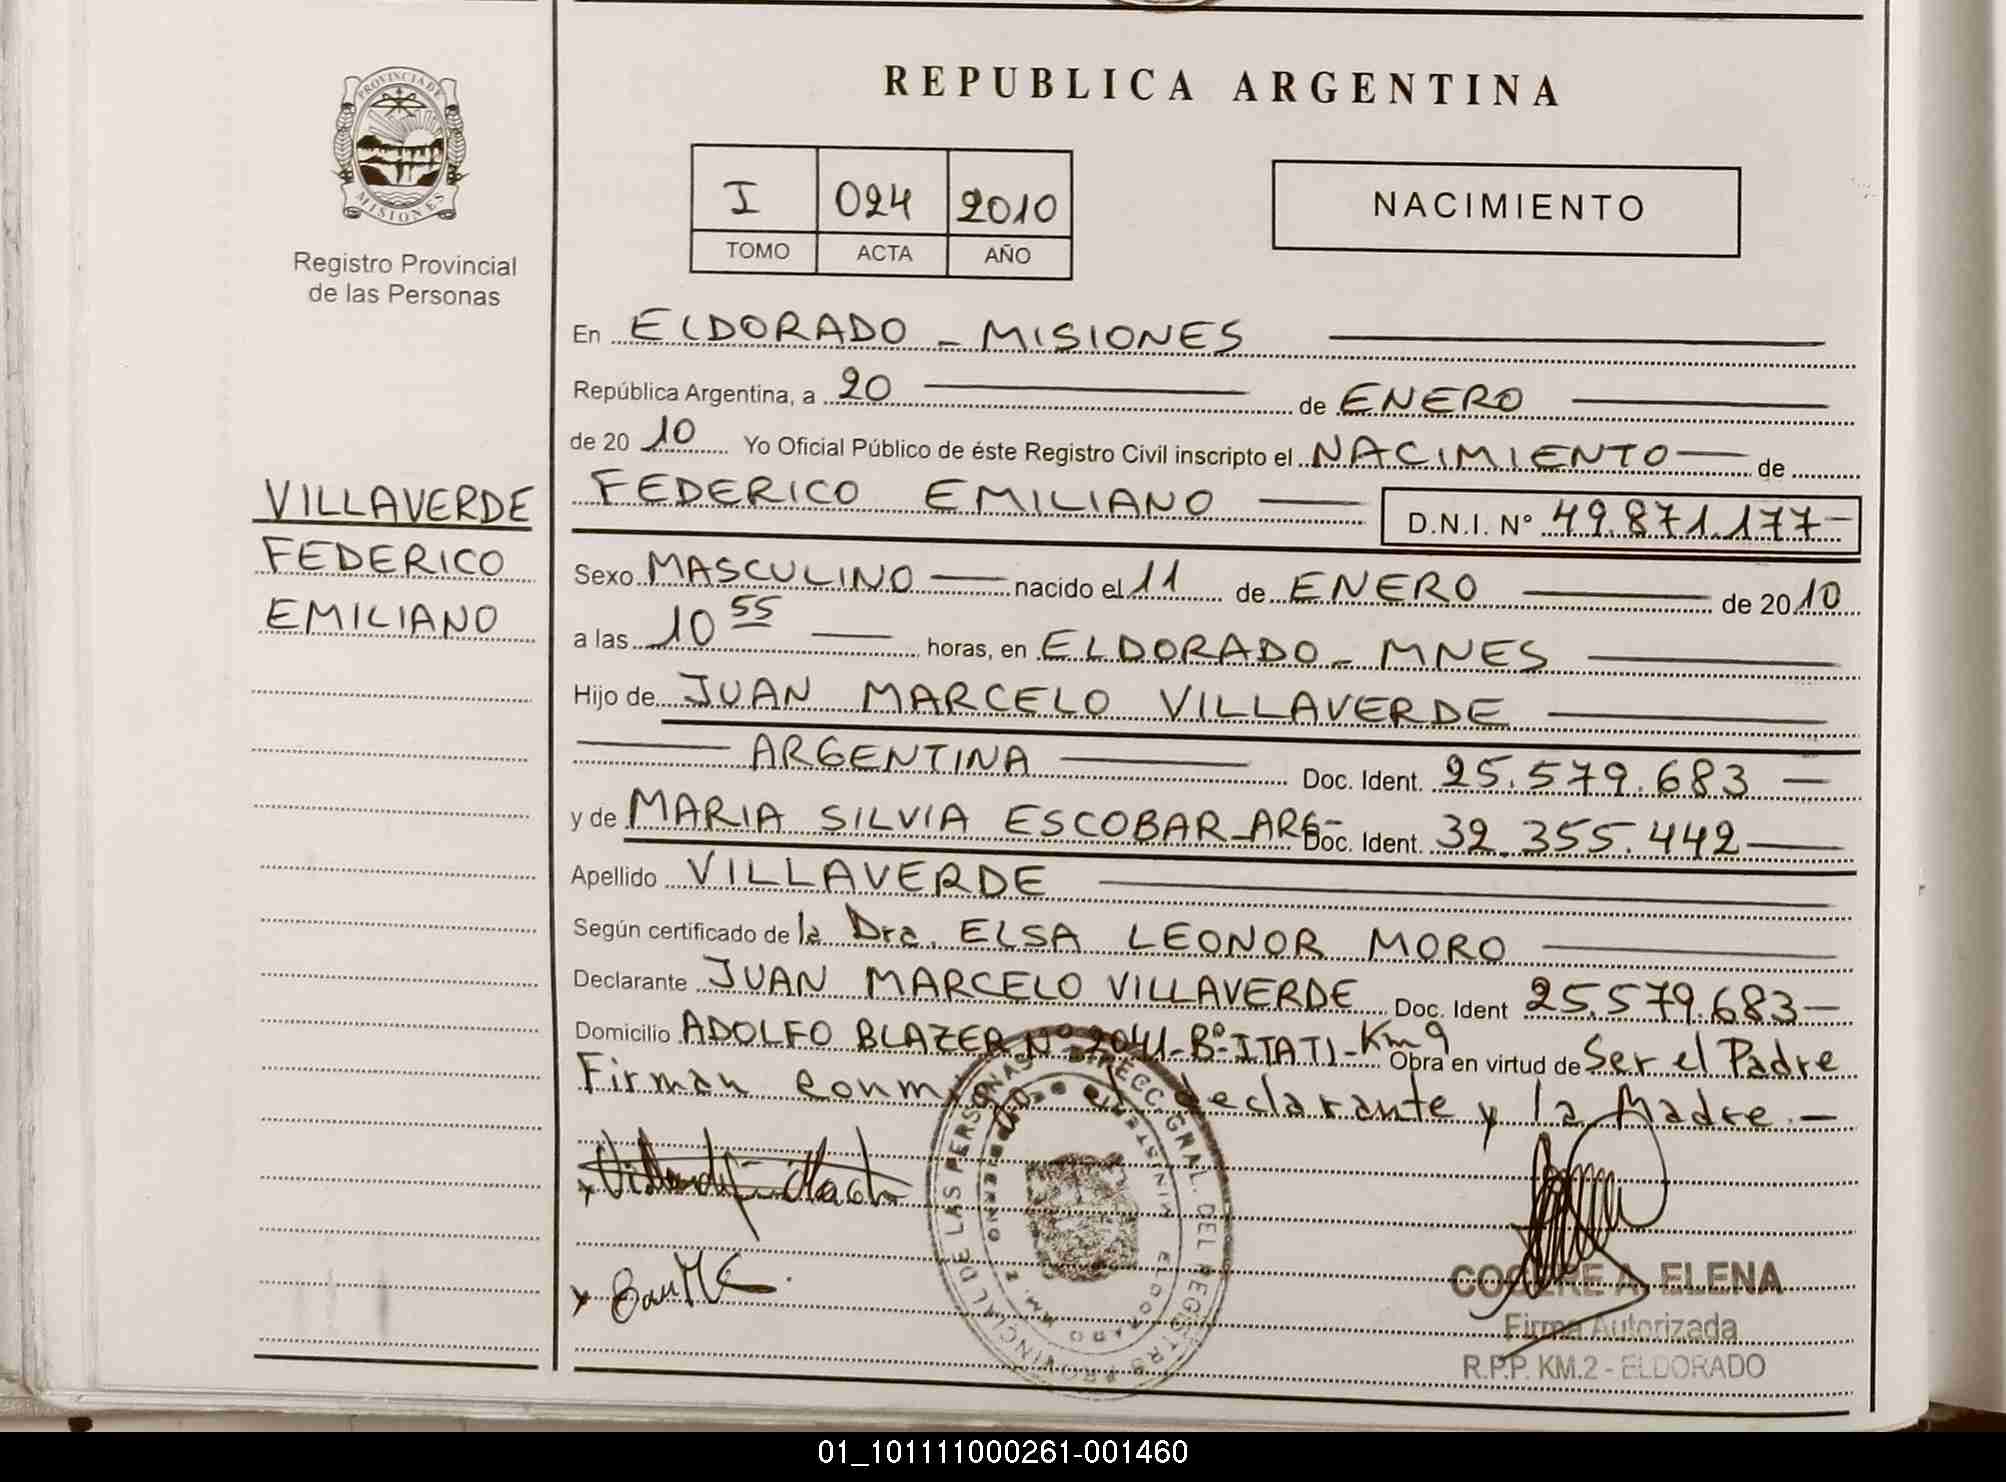 PROVINCIA DE
MISIONES
Registro Provincial
de las Personas
VILLAVERDE
FEDERICO
EMILIANO
REPUBLICA ARGENTINA
I 024 2010
TOMO ACTA AÑO
NACIMIENTO
En ELDORADO - MISIONES
República Argentina, a 20 de ENERO
de 2010 Yo Oficial Público de éste Registro Civil inscripto el NACIMIENTO de
FEDERICO EMILIANO D.N.I. N° 49.871.177-
Sexo MASCULINO nacido el 11 de ENERO de 2010
a las 10 55 horas, en ELDORADO - MNES
Hijo de JUAN MARCELO VILLAVERDE
ARGENTINA Doc. Ident. 25.579.683 -
y de MARIA SILVIA ESCOBAR - ARG- Doc. Ident. 32.355.442
Apellido VILLAVERDE
Según certificado de la Dra. ELSA LEONOR MORO
Declarante JUAN MARCELO VILLAVERDE Doc. Ident 25.579.683-
Domicilio ADOLFO BLAZER Nº 2041-Bº-ITATI-Km 9 Obra en virtud de Ser el Padre
Firman conmigo el declarante y la Madre.-
COCERE A. ELENA
Firma Autorizada
R.P.P. KM.2 - ELDORADO
01_101111000261-001460